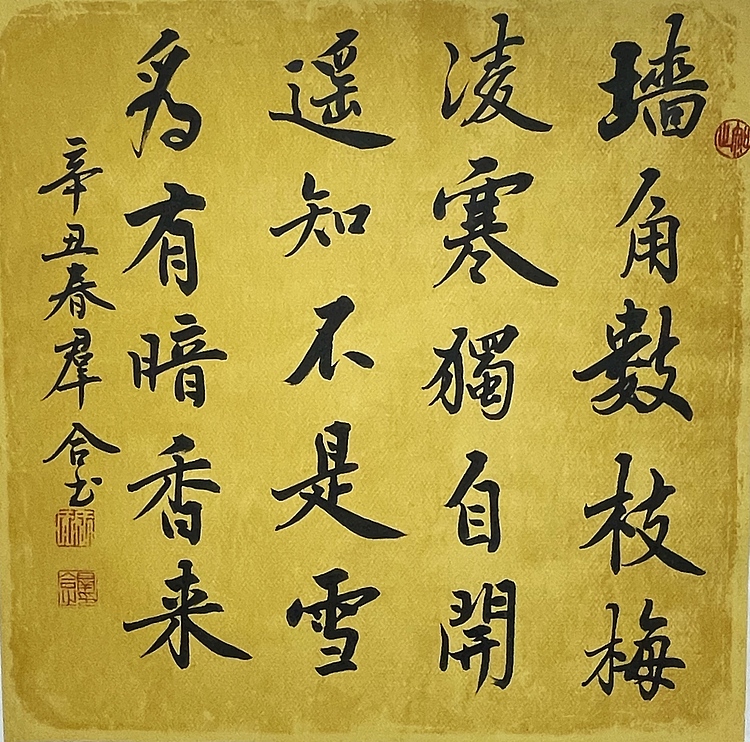 墙角數枝梅
凌寒獨自開
遥知不是雪
為有暗香来
辛丑春羣合书